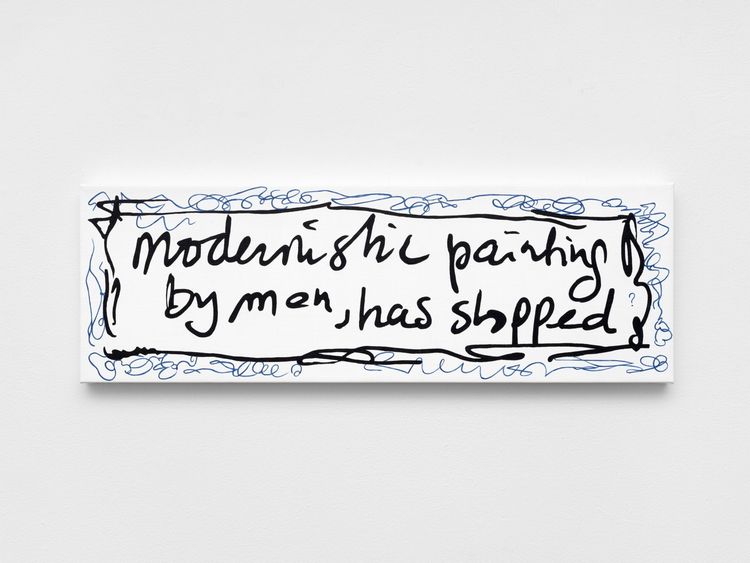 modernistic painting
by men, has stopped ?